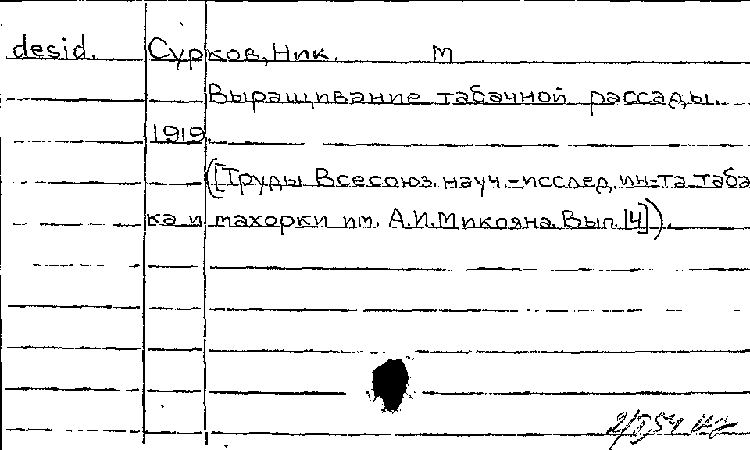 desid. Сурков, Ник. М
Выращивание табачной рассады.
1919.
([Труды Всесоюз. науч.-исслед. ин-та таба
ка и махорки им. А.И.Микояна. Вып. [4]).